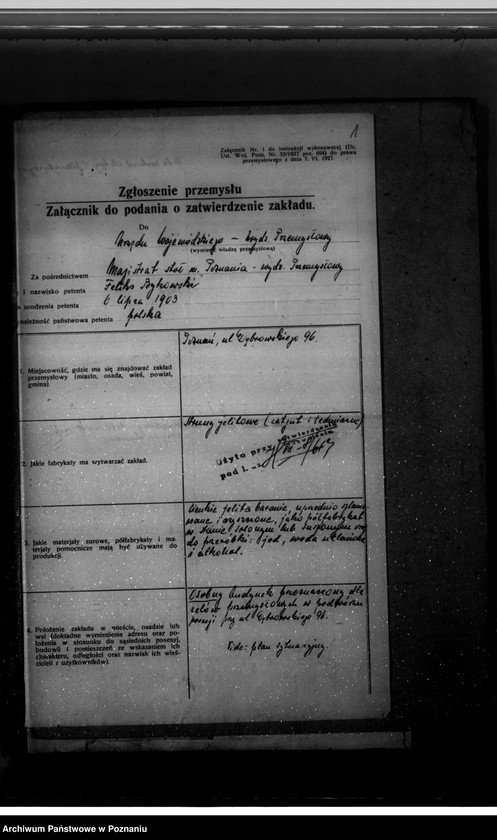 1
Załącznik Nr. 1 do instrukcji wykonawczej (Dz.
Ust. Woj. Pozn. Nr. 53/1927 poz. 604) do prawa
przemysłowego z dnia 7. VI. 1927.
Zgłoszenie przemysłu
Załącznik do podania o zatwierdzenie zakładu.
Do
Urzędu Wojewódzkiego – wydz. Przemysłowy
(wymienić władzę przemysłową)
Za pośrednictwem Magistrat stoł. m. Poznania - wydz. Przemysłowy
i nazwisko petenta Feliks Bykowski
urodzenia petenta 6 lipca 1903
petenta polska
1. Miejscowość, gdzie ma się znajdować zakład
przemysłowy (miasto, osada, wieś, powiat,
gmina).
Poznań, ul. Dąbrowskiego 96.
2. Jakie fabrykaty ma wytwarzać zakład.
Struny jelitowe (catgut i techniczne)
Użyto przy
pod l.
3. Jakie materjały surowe, półfabrykaty i ma-
terjały pomocnicze mają być używane do
produkcji.
Cienkie jelita baranie, uprzednio szlamo-
wane i czyszczone, jako półfabrykat
w stanie solonym lub suszonym oraz
do przeróbki: jod, woda utleniona
i alkohol.
4. Położenie zakładu w mieście, osadzie lub
wsi (dokładne wymienienie adresu oraz po-
łożenia w stosunku do sąsiednich posesyj,
budowli i pomieszczeń ze wskazaniem ich
charakteru, odległości oraz nazwisk ich właś-
cicieli z użytkowników).
Osobny budynek przeznaczony dla
celów przemysłowych w podwórzu
posesji przy ul. Dąbrowskiego 96.
Vide: plan sytuacyjny.
Archiwum Państwowe w Poznaniu